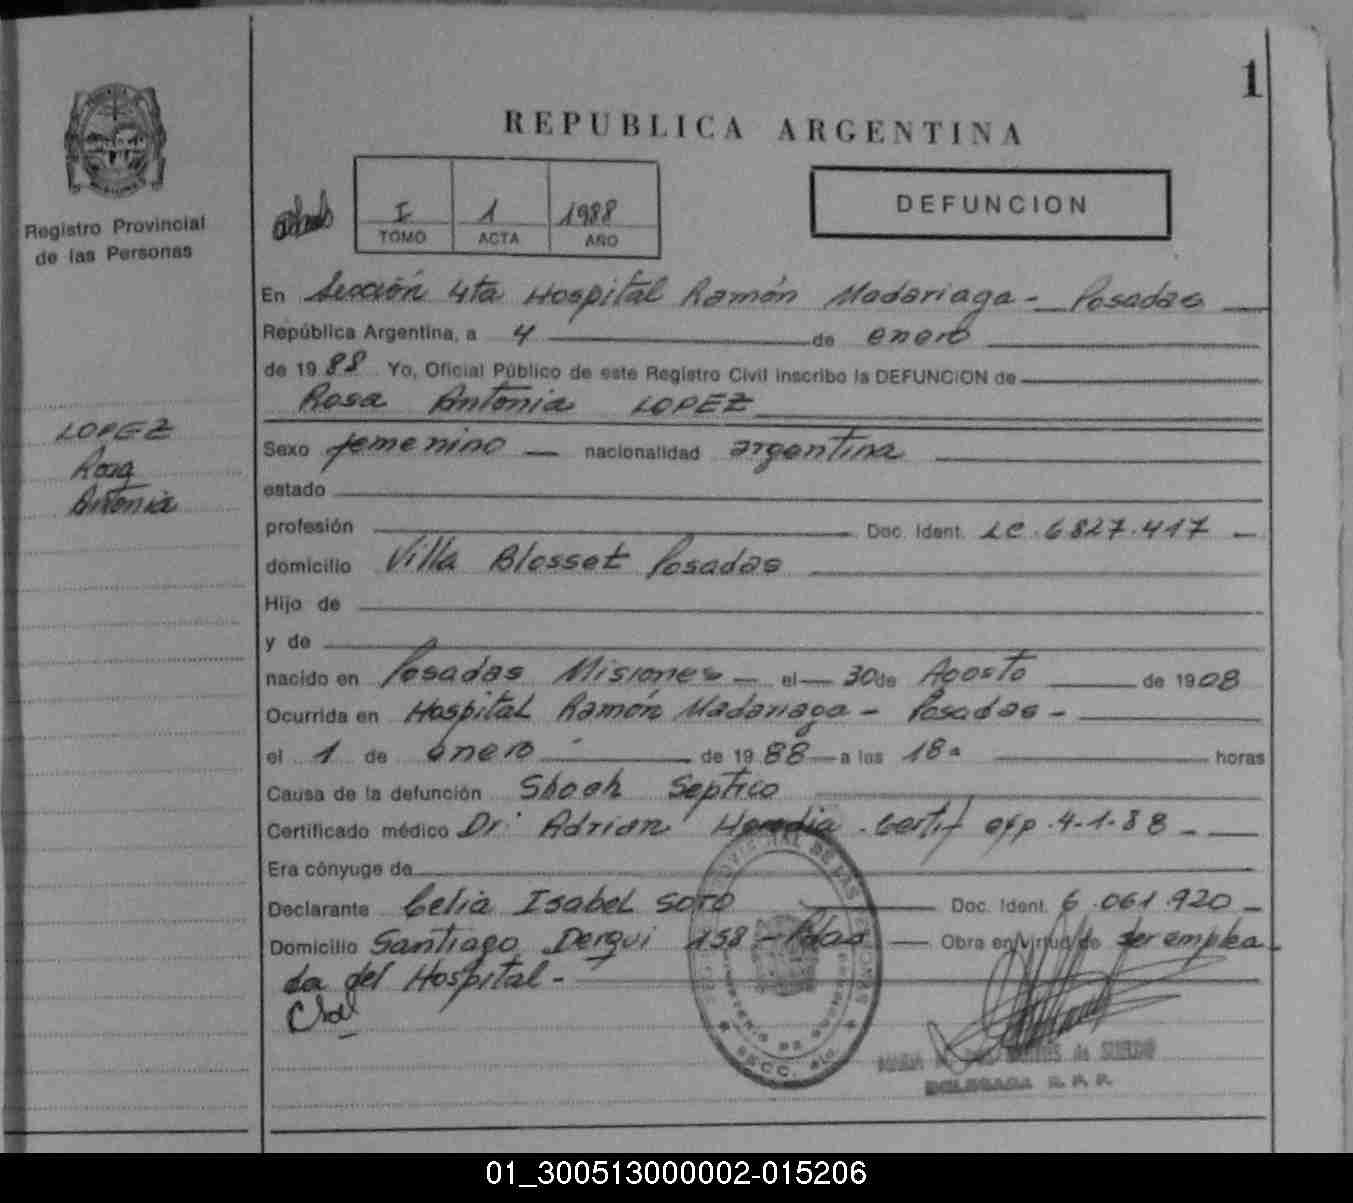 1
REPUBLICA ARGENTINA
Registro Provincial
de las Personas
I 1 1988
TOMO ACTA AÑO
DEFUNCION
En Sección 4ta Hospital Ramón Madariaga - Posadas
República Argentina, a 4 de enero
de 1988 Yo, Oficial Público de este Registro Civil inscribo la DEFUNCION de
Rosa Antonia LOPEZ
LOPEZ
Rosa
Antonia
Sexo femenino nacionalidad argentina
estado
profesión Doc. Ident. LC. 6827.417
domicilio Villa Blosset Posadas
Hijo de
y de
nacido en Posadas Misiones el 30 de Agosto de 1908
Ocurrida en Hospital Ramón Madariaga - Posadas -
el 1 de enero de 1988 a las 18ª horas
Causa de la defunción Shock Septico
Certificado médico Dr. Adrian Heredia. Certif exp. 4-1-88
Era cónyuge de
Declarante Celia Isabel SOTO Doc. Ident. 6.061.920
Domicilio Santiago Derqui 158 - Pdas Obra en virtud de ser emplea
da del Hospital -
SECC. 4ta
DELEGADA R.P.P.
01_300513000002-015206